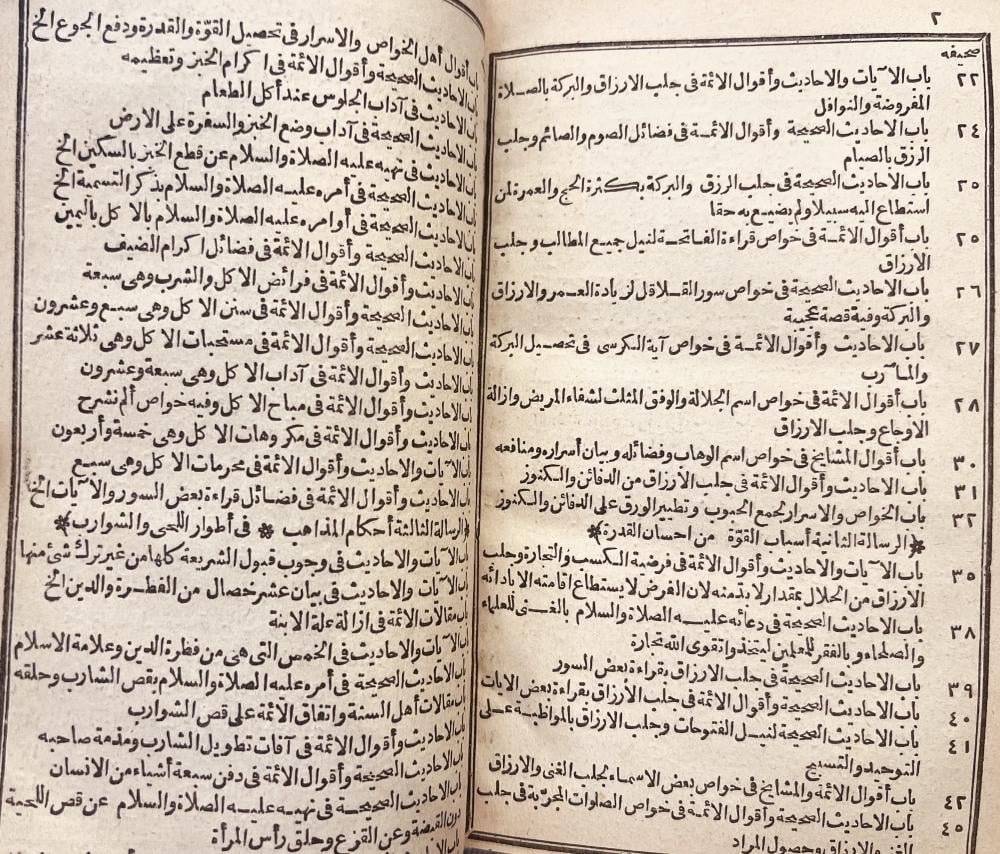 ٢
صحيفه
٢٢ باب الآيات والاحاديث وأقوال الائمة فى جلب الارزاق والبركة بالصلاة
المفروضة والنوافل
٢٤ باب الاحاديث الصحيحة وأقوال الائمة فى فضائل الصوم والصائم وجلب
الرزق بالصيام
٢٥ باب الاحاديث الصحيحة فى جلب الرزق والبركة بكثرة الحج والعمرة لمن
استطاع اليه سبيلا ولم يضيع به حقا
٢٥ باب أقوال الائمة فى خواص قراءة الفاتحة لنيل جميع المطالب وجلب
الارزاق
٢٦ باب الاحاديث الصحيحة فى خواص سور القلاقل لزيادة العمر والارزاق
والبركة وفيه قصة عجيبة
٢٧ باب الاحاديث وأقوال الائمة فى خواص آية الكرسى فى تحصيل البركة
والمآرب
٢٨ باب أقوال الائمة فى خواص اسم الجلالة والوفق المثلث لشفاء المريض وازالة
الاوجاع وجلب الارزاق
٣٠ باب أقوال المشايخ فى خواص اسم الوهاب وفضائله وبيان أسراره ومنافعه
٣١ باب الاحاديث وأقوال الائمة فى جلب الارزاق من الدفائن والكنوز
٣٢ باب الخواص والاسرار لجمع الحبوب وتطيير الورق على الدفائن والكنوز
﴿الرسالة الثانية أسباب القوّة من احسان القدرة﴾
٣٥ باب الآيات والاحاديث وأقوال الائمة فى فرضية الكسب والتجارة وجلب
الارزاق من الحلال بمقدار لابد منه لان الفرض لا يستطاع اقامته الا بادائه
٣٨ باب الاحاديث الصحيحة فى دعائه عليه الصلاة والسلام بالغنى للعلماء
والصلحاء وبالفقر للمعلمين ليتخذوا تقوى الله تجارة
٣٩ باب الاحاديث الصحيحة فى جلب الارزاق بقراءة بعض السور
٤٠ باب الاحاديث الصحيحة وأقوال الائمة فى جلب الارزاق بقراءة بعض الايات
٤١ باب الاحاديث الصحيحة لنيل الفتوحات وجلب الارزاق بالمواظبة على
التوحيد والتسبيح
٤٢ باب أقوال الائمة والمشايخ فى خواص بعض الاسماء لجلب الغنى والارزاق
٤٥ باب الاحاديث الصحيحة وأقوال الائمة فى خواص الصلوات المجرّبة فى جلب
الغنى والارزاق وحصول المراد
باب أقوال أهل الخواص والاسرار فى تحصيل القوّة والقدرة ودفع الجوع الخ
باب الاحاديث الصحيحة وأقوال الائمة فى اكرام الخبز وتعظيمه
باب الاحاديث فى آداب الجلوس عند أكل الطعام
باب الاحاديث الصحيحة فى آداب وضع الخبز والسفرة على الارض
باب الاحاديث فى نهيه عليه الصلاة والسلام عن قطع الخبز بالسكين الخ
باب الاحاديث الصحيحة فى أمره عليه الصلاة والسلام بذكر التسمية الخ
باب الاحاديث الصحيحة فى أوامره عليه الصلاة والسلام بالاكل باليمين
باب الاحاديث الصحيحة وأقوال الائمة فى فضائل اكرام الضيف
باب الاحاديث وأقوال الائمة فى فرائض الاكل والشرب وهى سبعة
باب الاحاديث الصحيحة وأقوال الائمة فى سنن الاكل وهى سبع وعشرون
باب الاحاديث الصحيحة وأقوال الائمة فى مستحبات الاكل وهى ثلاثة عشر
باب الاحاديث وأقوال الائمة فى آداب الاكل وهى سبعة وعشرون
باب الاحاديث وأقوال الائمة فى مباح الاكل وفيه خواص ألم نشرح
باب الاحاديث وأقوال الائمة فى مكروهات الاكل وهى خمسة وأربعون
باب الآيات والاحاديث وأقوال الائمة فى محرمات الاكل وهى سبع
باب الاحاديث وأقوال الائمة فى فضائل قراءة بعض السور والآيات الخ
﴿الرسالة الثالثة أحكام المذاهب * فى أطوار اللحى والشوارب﴾
باب الآيات والاحاديث فى وجوب قبول الشريعة كلها من غير ترك شئ منها
باب الآيات والاحاديث فى بيان عشر خصال من الفطرة والدين الخ
باب مقالات الائمة فى ازالة علة الابنة
باب الآيات والاحاديث فى الخمس التى هى من فطرة الدين وعلامة الاسلام
باب الاحاديث الصحيحة فى أمره عليه الصلاة والسلام بقص الشارب وحلقه
باب مقالات أهل السنة واتفاق الائمة على قص الشوارب
باب الاحاديث وأقوال الائمة فى آفات تطويل الشارب ومذمة صاحبه
باب الاحاديث الصحيحة وأقوال الائمة فى دفن سبعة أشياء من الانسان
باب الاحاديث الصحيحة فى نهيه عليه الصلاة والسلام عن قص اللحية
دون القبضة وعن القزع وحلق رأس المرأة